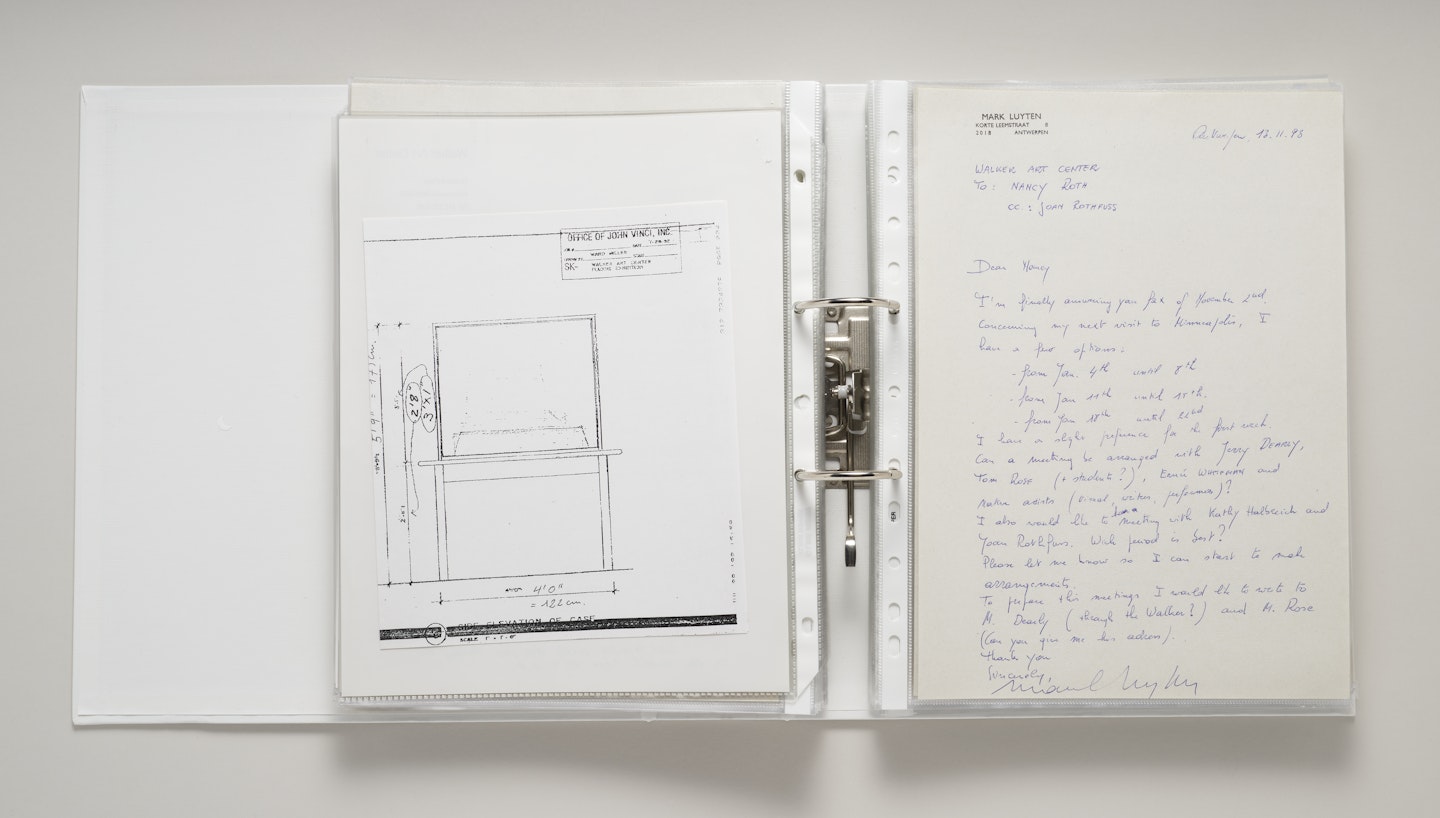 OFFICE OF JOHN VINCI, INC.
SK-
WALKER ART CENTER
FLUXUS EXHIBITION
5'9" = 171 cm.
4'0"
= 122 cm.
SIDE ELEVATION OF CASE
SCALE 1" = 1'-0"
MARK LUYTEN
KORTE LEEMSTRAAT 8
2018 ANTWERPEN
Antwerpen, 13.11.98
WALKER ART CENTER
To: NANCY ROTH
cc.: JOAN ROTHFUSS
Dear Nancy
I'm finally answering your fax of November 2nd.
Concerning my next visit to Minneapolis, I
have a few options:
- from Jan. 4th until 8th
- from Jan 11th until 15th.
- from Jan 18th until 22nd
I have a slight preference for the first week.
Can a meeting be arranged with Jerry DEARLY,
Tom Rose (+ students?), Ernie and
native artists (visual, writers, performers)?
I also would like to have a meeting with Kathy Halbreich and
Joan Rothfuss. Wich period is best?
Please let me know so I can start to make
arrangements.
To prepare this meetings I would like to write to
M. Dearly (through the Walker?) and M. Rose
(Can you give me his adress).
Thank you
Sincerely,